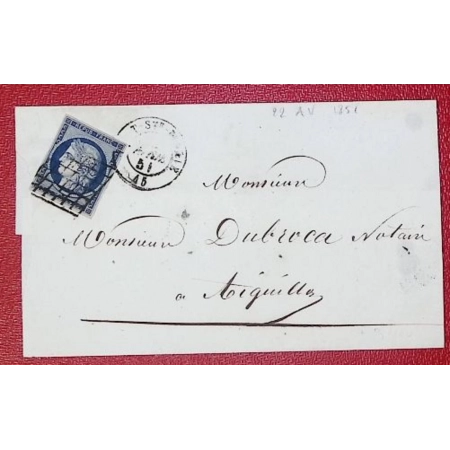 12 AV 1851
51
Monsieur
Monsieur Dubroca Notaire
a Aiguillon